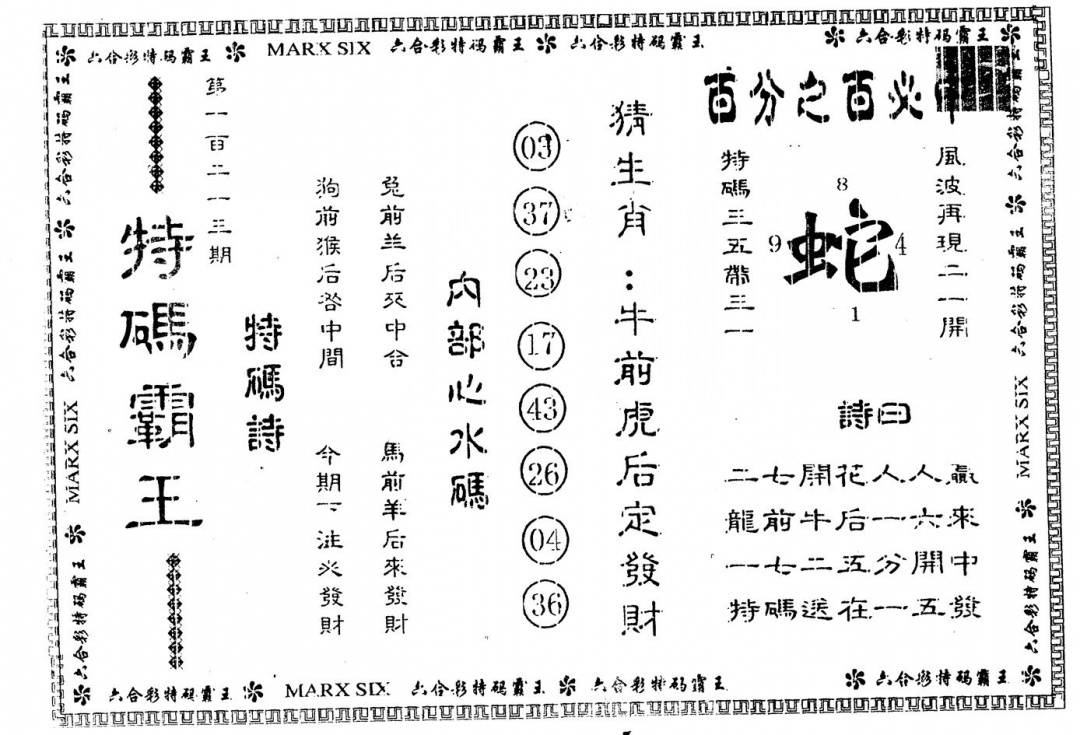 六合彩特码霸王 MARX SIX 六合彩特码霸王 六合彩特码霸王 六合彩特码霸王
百分之百必中
風波再現二一開
8
9 蛇 4
1
特碼三五帶三一
詩曰
二七開花人人贏
龍前牛后一六來
一七二五分開中
特碼送在一五發
猜生肖:牛前虎后定發財
03
37
23
17
43
26
04
36
内部心水碼
兔前兰后 中合
馬前羊后來發財
狗前猴后 中間
今期下注必發財
特碼詩
第一百二一三期
特碼霸王
六合彩特码霸王 六合彩特码霸王 MARX SIX 六合彩特码霸王
六合彩特码霸王 六合彩特码霸王 MARX SIX 六合彩特码霸王
六合彩特码霸王 MARX SIX 六合彩特码霸王 六合彩特码霸王 六合彩特码霸王